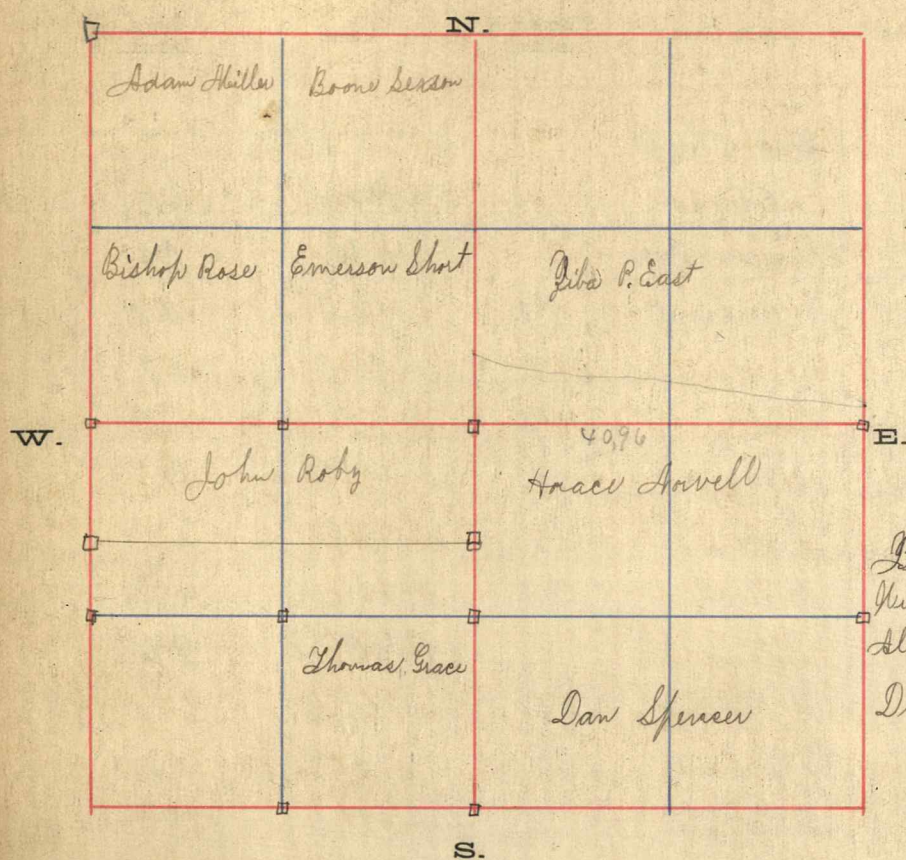 N.
Adam Miller Boone Sexson
Bishop Rose Emerson Short Ziba P. East
W. 40,96 E.
John Roby Horace Norvell
Thomas Grace
Dan Spencer
S.